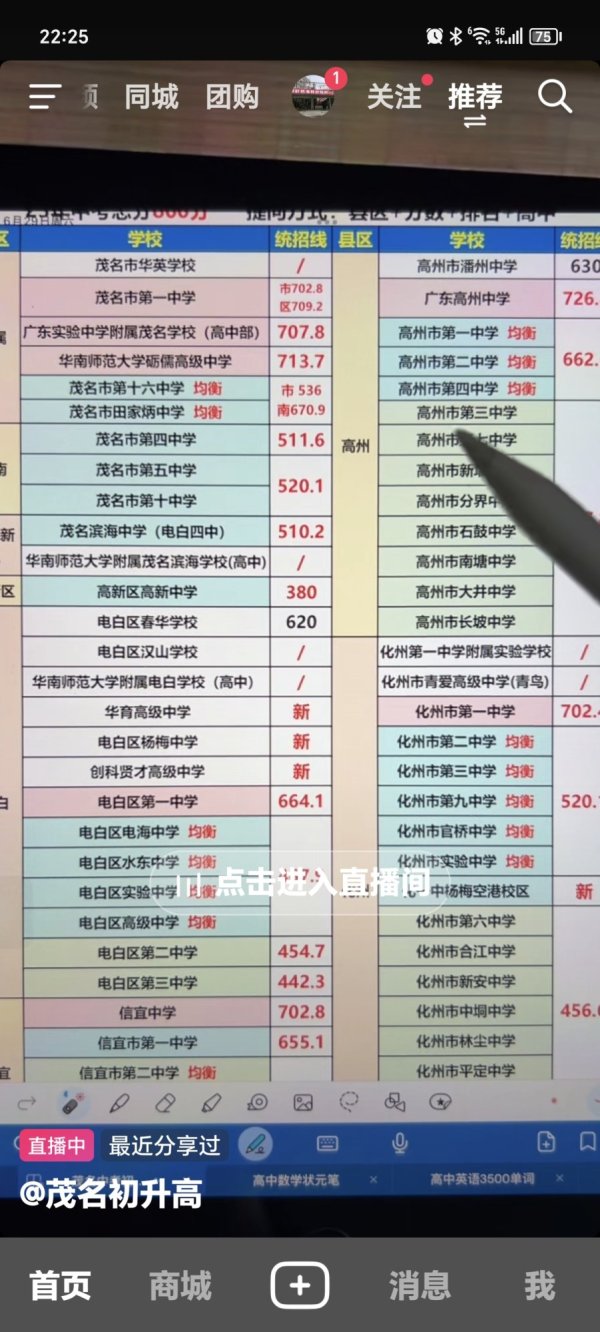 22:25
5G
75
同城 团购 1 关注 推荐
6月29日周六
县区 学校 统招线 县区 学校 统招线
茂名市华英学校 / 高州市潘州中学 630
茂名市第一中学 市702.8 区709.2 广东高州中学 726.
广东实验中学附属茂名学校（高中部） 707.8 高州市第一中学 均衡
华南师范大学砺儒高级中学 713.7 高州市第二中学 均衡 662.
茂名市第十六中学 均衡 市 536 高州市第四中学 均衡
茂名市田家炳中学 均衡 南670.9 高州市第三中学
茂名市第四中学 511.6 高州 高州市 七中学
茂名市第五中学 520.1 高州市新
茂名市第十中学 高州市分界中
茂名滨海中学（电白四中） 510.2 高州市石鼓中学
华南师范大学附属茂名滨海学校(高中) / 高州市南塘中学
高新区高新中学 380 高州市大井中学
电白区春华学校 620 高州市长坡中学
电白区汉山学校 / 化州第一中学附属实验学校 /
华南师范大学附属电白学校（高中） / 化州市青爱高级中学(青鸟) /
华育高级中学 新 化州市第一中学 702.4
电白区杨梅中学 新 化州市第二中学 均衡
创科贤才高级中学 新 化州市第三中学 均衡
电白区第一中学 664.1 化州市第九中学 均衡 520.
电白区电海中学 均衡 化州市官桥中学 均衡
电白区水东中学 均衡 化州市实验中学 均衡
点击进入直播间
电白区实验中学 均衡 中杨梅空港校区 新
电白区高级中学 均衡 化州市第六中学
电白区第二中学 454.7 化州市合江中学
电白区第三中学 442.3 化州市新安中学
信宜中学 702.8 化州市中垌中学 456.
信宜市第一中学 655.1 化州市林尘中学
信宜市第二中学 均衡 化州市平定中学
直播中 最近分享过
高中数学状元笔 × 高中英语3500单词 ×
@茂名初升高
首页 商城 消息 我